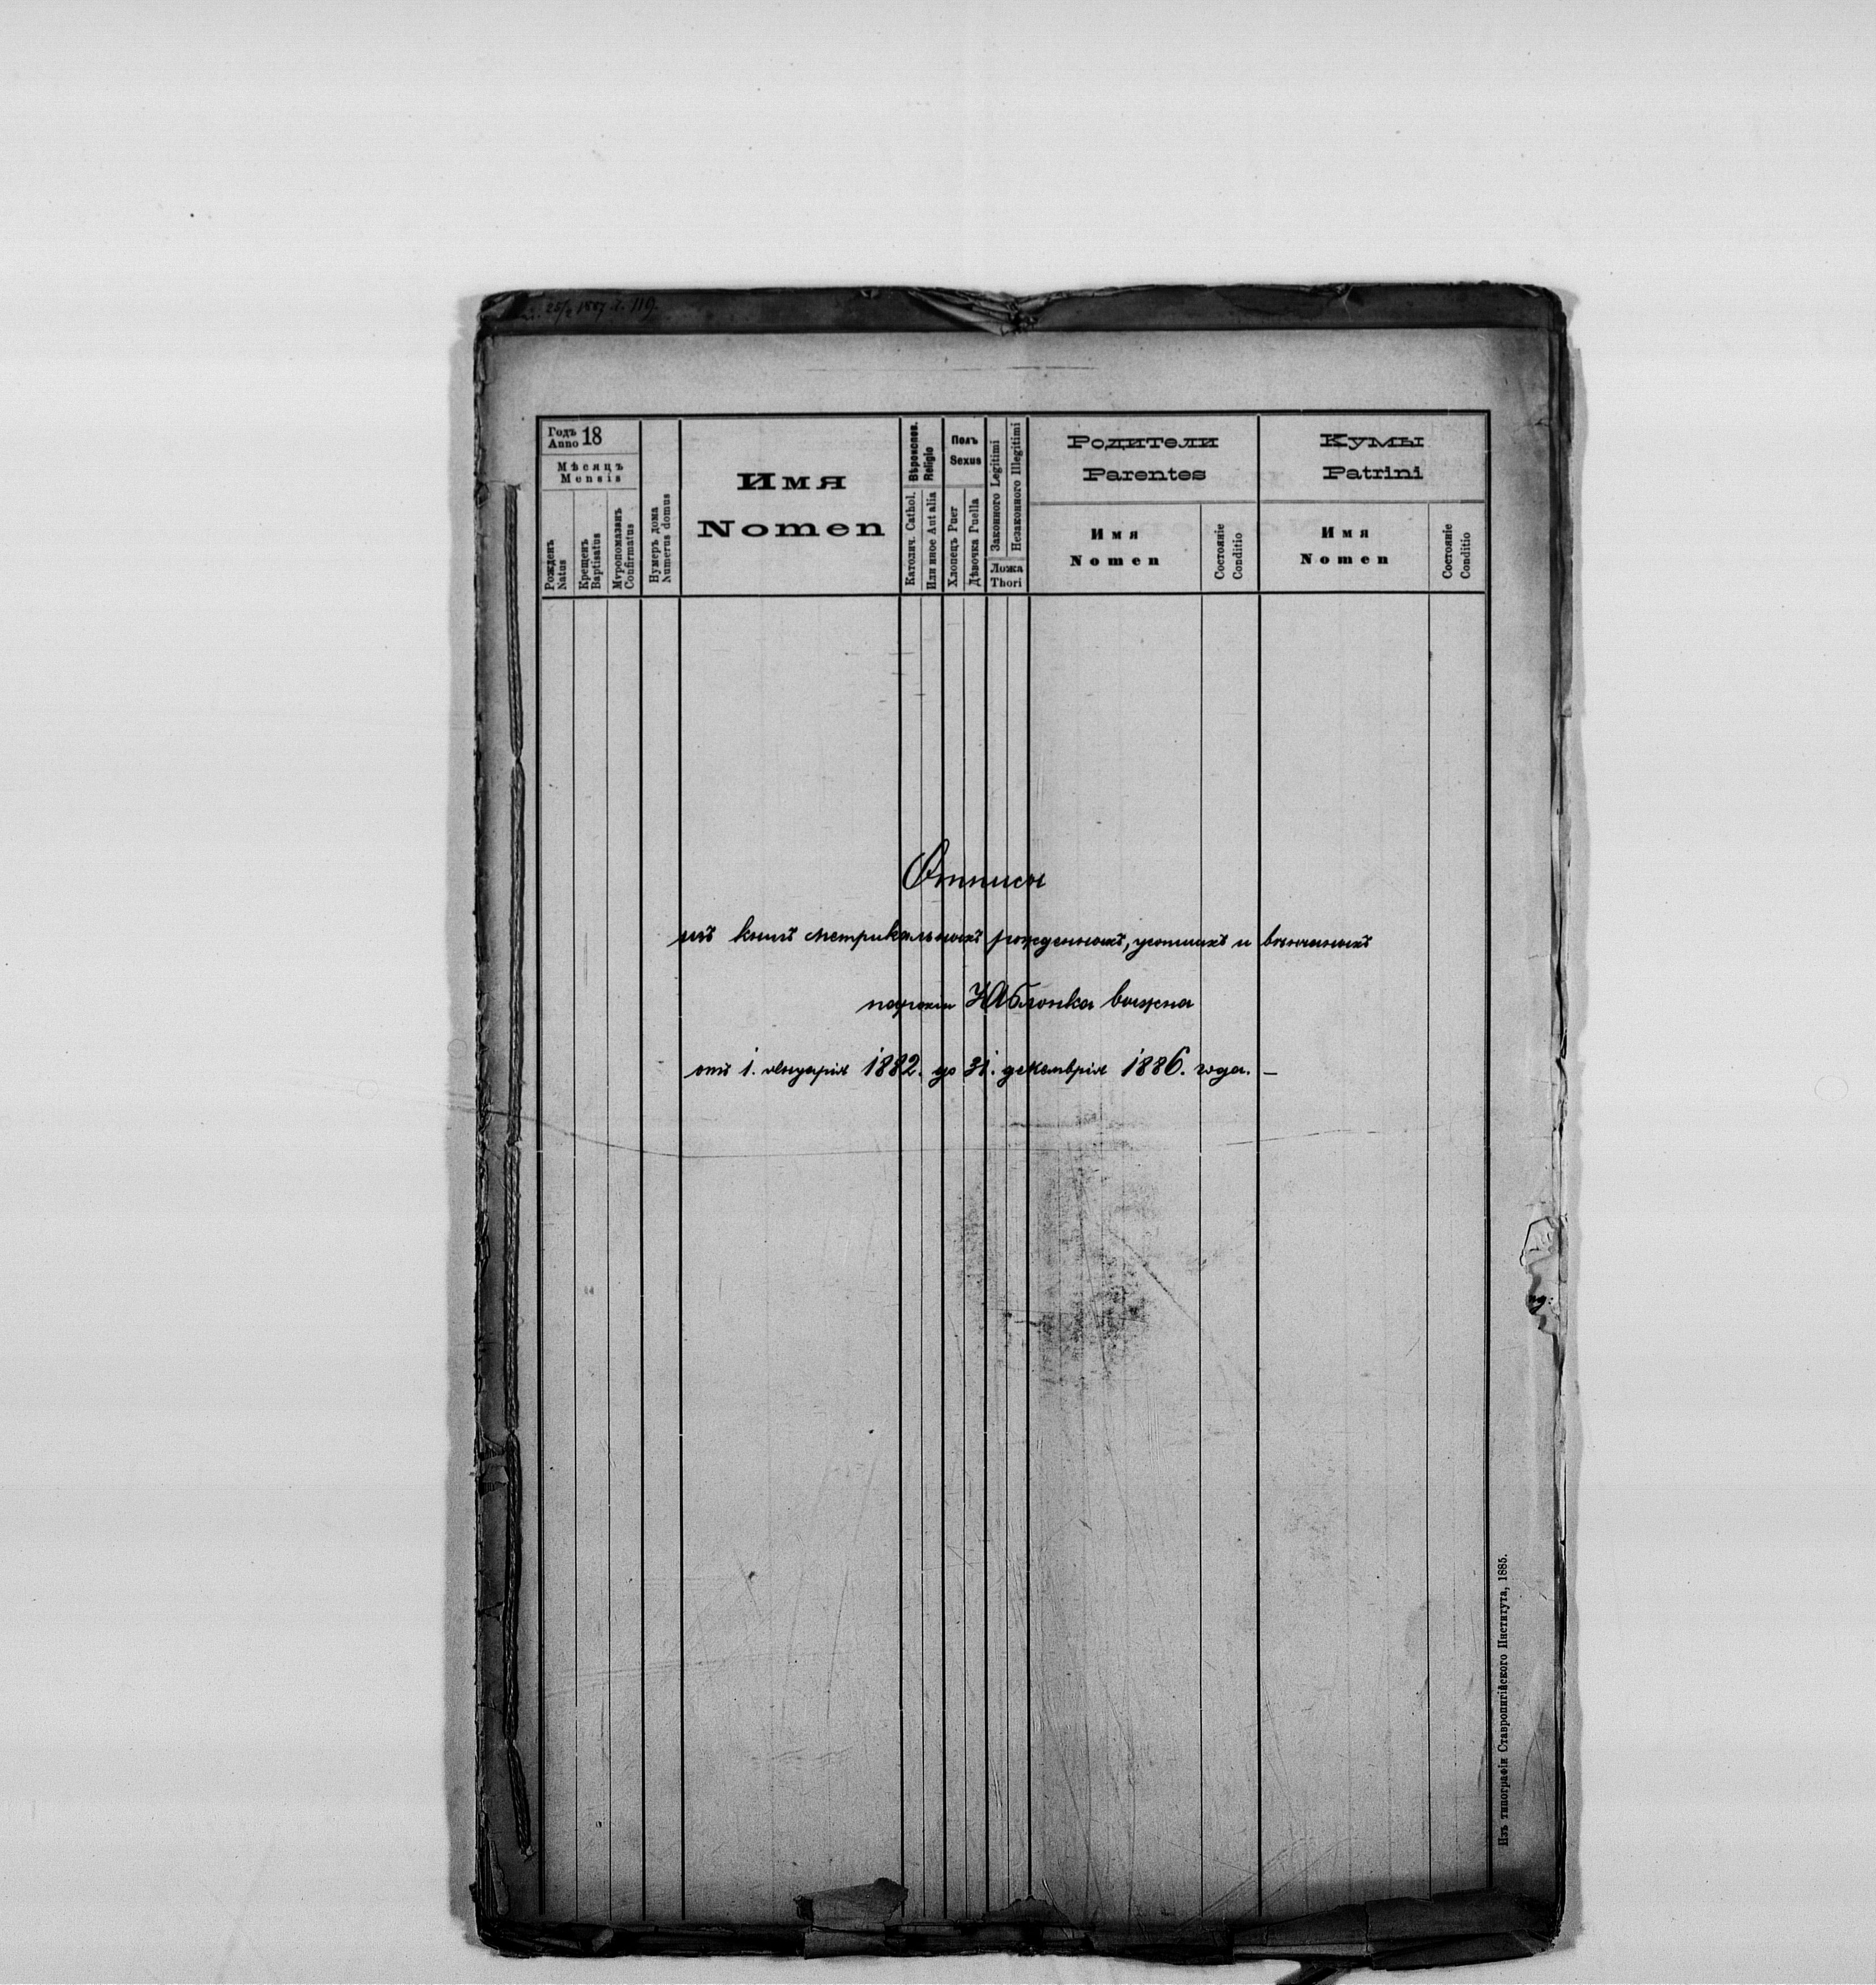 25/2 1887 л. 119.
Годъ 18
Anno
Мѣсяцъ
Mensis
Рожденъ
Natus
Крещенъ
Baptisatus
Мѵропомазанъ
Confirmatus
Нумеръ дома
Numerus domus
Имя
Nomen
Вѣроисповѣд.
Religio
Католич. Cathol.
Или иное Aut alia
Полъ
Sexus
Хлопецъ Puer
Дѣвочка Puella
Законного Legitimi
Незаконного Illegitimi
Ложа
Thori
Родители
Parentes
Имя
Nomen
Состояніе
Conditio
Кумы
Patrini
Имя
Nomen
Состояніе
Conditio
Отписы
изъ книгъ метрикальныхъ рожденныхъ, усопшихъ и вѣнчанныхъ
парохіи Яблонка выжна
отъ 1. януарія 1882. до 31. декемврія 1886. года. —
Изъ типографіи Ставропигійского Института, 1885.